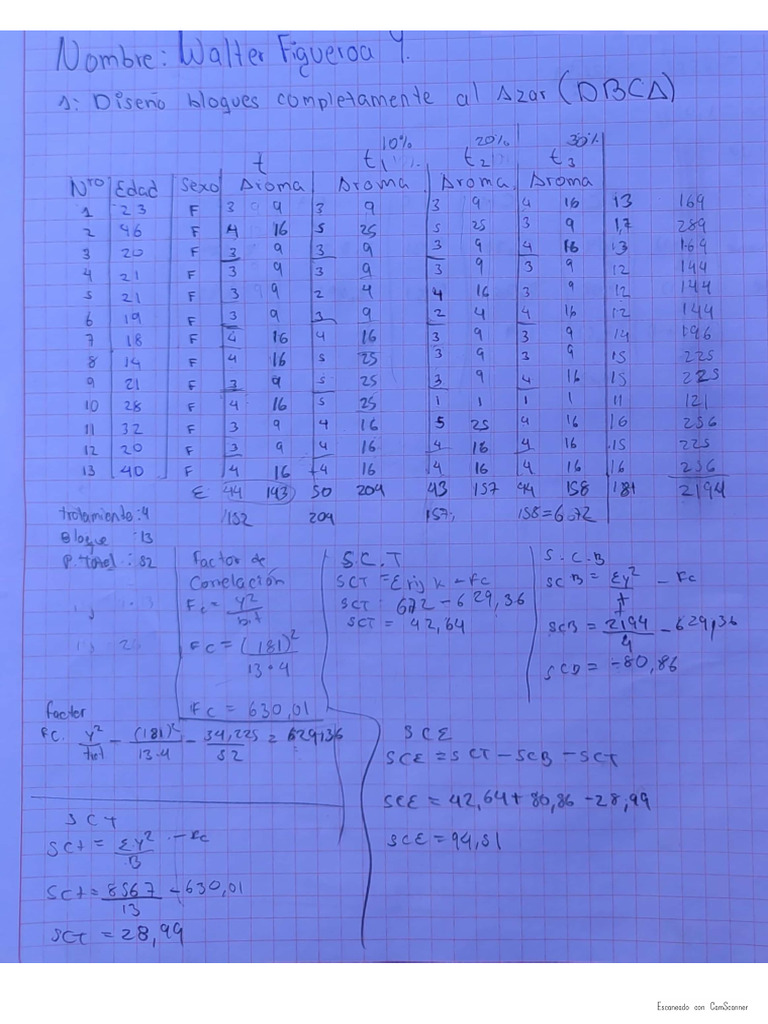 Nombre: Walter Figueroa Y.
1: Diseño bloques completamente al Azar (DBCA)
10% 20% 30%
t t1 t2 t3
Nro Edad Sexo Aroma Aroma Aroma Aroma
1 23 F 3 9 3 9 3 9 4 16 13 169
2 46 F 4 16 5 25 5 25 3 9 17 289
3 20 F 3 9 3 9 3 9 4 16 13 169
4 21 F 3 9 3 9 3 9 3 9 12 144
5 21 F 3 9 2 4 4 16 3 9 12 144
6 19 F 3 9 3 9 2 4 4 16 12 144
7 18 F 4 16 4 16 3 9 3 9 14 196
8 14 F 4 16 5 25 3 9 3 9 15 225
9 21 F 3 9 5 25 3 9 4 16 15 225
10 28 F 4 16 5 25 1 1 1 1 11 121
11 32 F 3 9 4 16 5 25 4 16 16 256
12 20 F 3 9 4 16 4 16 4 16 15 225
13 40 F 4 16 4 16 4 16 4 16 16 256
Σ 44 143 50 204 43 157 44 158 181 2194
tratamiento: 4 152 204 157 158 = 672
Bloque : 13
P. total : 52
Factor de
Correlación
Fc = y²
b.t
Fc = (181)²
13 • 4
Fc = 630,01
S.C.T
SCT = Σ rij k - FC
SCT: 672 - 629,36
SCT = 42,64
S.C.B
SCB = Σy² - Fc
t
SCB = 2194 - 629,36
4
SCB = -80,86
factor
FC. y² - (181)² - 34,225 = 629,36
13.4 52
SCE
SCE = SCT - SCB - SCT
SCE = 42,64 + 80,86 - 28,99
SCE = 94,51
SCT
SCt = Σy² - Fc
B
SCt = 8567 - 630,01
13
SCT = 28,99
Escaneado con CamScanner